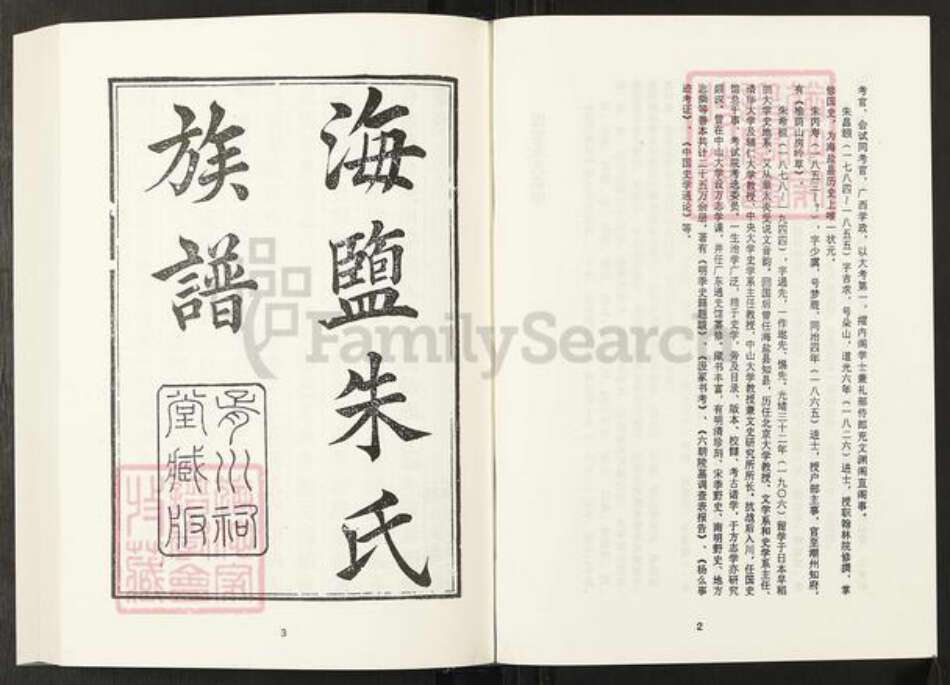 考官、会试同考官、广西学政，以大考第一，擢内阁学士兼礼部侍郎充文渊阁直阁事。
朱昌颐（一七八四～一八五五）字吉求，号朵山，道光六年（一八二六）进士，授职翰林院修撰，掌
修国史，为海盐县历史上唯一状元。
朱丙寿（一八五三～？），字少虞，号梦鹿，同治四年（一八六五）进士，授户部主事，官至潮州知府，
有《榆荫山房吟草》。
朱希祖（一八七八～一九四四），字逷先，一作逖先、惕先，光绪三十二年（一九〇六）留学于日本早稻
田大学史地系，又从章太炎受说文音韵，回国后曾任海盐县知县，历任北京大学教授、文学系和史学系主任、
清华大学及辅仁大学教授、中央大学史学系主任教授、中山大学教授兼文史研究所所长，抗战后入川，任国史
馆总干事、考试院考选委员，一生治学广泛，精于史学，旁及目录、版本、校雠、考古诸学，于方志学亦研究
颇深，曾在中山大学设方志学课，并任广东通志馆纂修，藏书丰富，有明清珍刻、宋季野史、南明野史、地方
志乘等善本共计二十五万余册，著有《明季史籍题跋》、《汲冢书考》、《六朝陵墓调查表报告》、《杨么事
迹考证》、《中国史学通论》等。
2
海鹽朱氏
族譜
胥川祠
堂臧版
3
FamilySearch